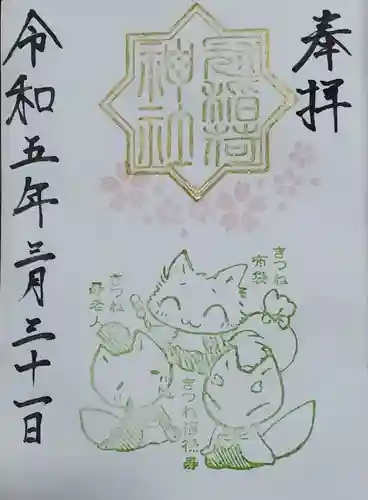 奉拝
稲荷
神社
令和五年三月三十一日
きつね
布袋
きつね
寿老人
きつね福禄寿